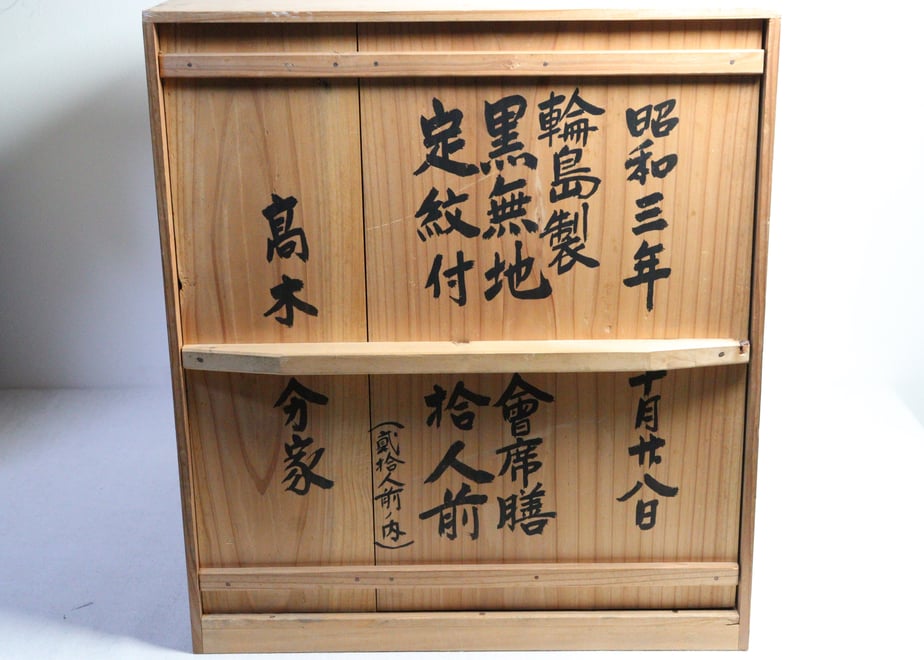 昭和三年十月廿八日
輪島製
黒無地會席膳
定紋付拾人前
(貳拾人前ノ内)
髙木分家